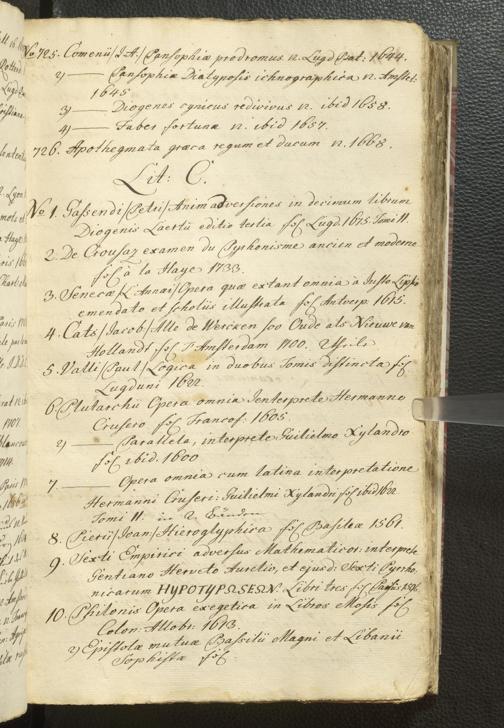 No 725. Comenii /J: A:/ Pansophiæ prodromus n. Lugd Bat. 1644.
2) —— Pansophiæ Diatyposis ichnographica n. Amstel:
1645
3) —— Diogenes cynicus redivivus n. ibid 1658.
4) —— Faber fortunæ n. ibid 1657.
726. Apothegmata græca regum et ducum n. 1668.
Lit: C.
No 1. Gassendi /Petri/ Animadversiones in decimum librum
Diogenis Laertii editio tertia fol Lugd. 1675. Tomi II.
2. De Crousaz examen du Pyrrhonisme ancien et moderne
fol à la Haye 1733.
3. Senecæ /L: Annæi/ Opera quæ extant omnia à Justo Lipsio
emendata et scholiis illustrata fol Antverp. 1615.
4. Cats /Jacob/ Alle de Wercken soo Oude als Nieuwe van
Hollandt fol T'Amsterdam 1700.
5. Vallii /Paul/ Logica in duobus Tomis distincta fol
Lugduni 1622
6. Plutarchii Opera omnia Jenterprete Hermanno
Crusero fol Francof: 1605.
2) —— Parallela, interprete Guilielmo Xylandro
fol ibid. 1600
7 —— Opera omnia cum latina interpretatione
Hermanni Cruseri: Guilielmi Xylandri fol ibid 1622
Tomi II. in 2 Bänden
8. Pierii /Joan/ Hieroglyphica fol Basileæ 1561.
9. Sexti Empirici adversus Mathematicos: interprete
Gentiano Herveto Aurelio, et ejusd: Sexti Pyrrho-
nicarum HYPOTYPΩSEΩN. Libri tres fol
10. Philonis Opera exegetica in Libros Mosis fol
Colon: Allobr: 1613.
2) Epistolæ mutuæ Basilii Magni et Libanii
Sophistæ fol.